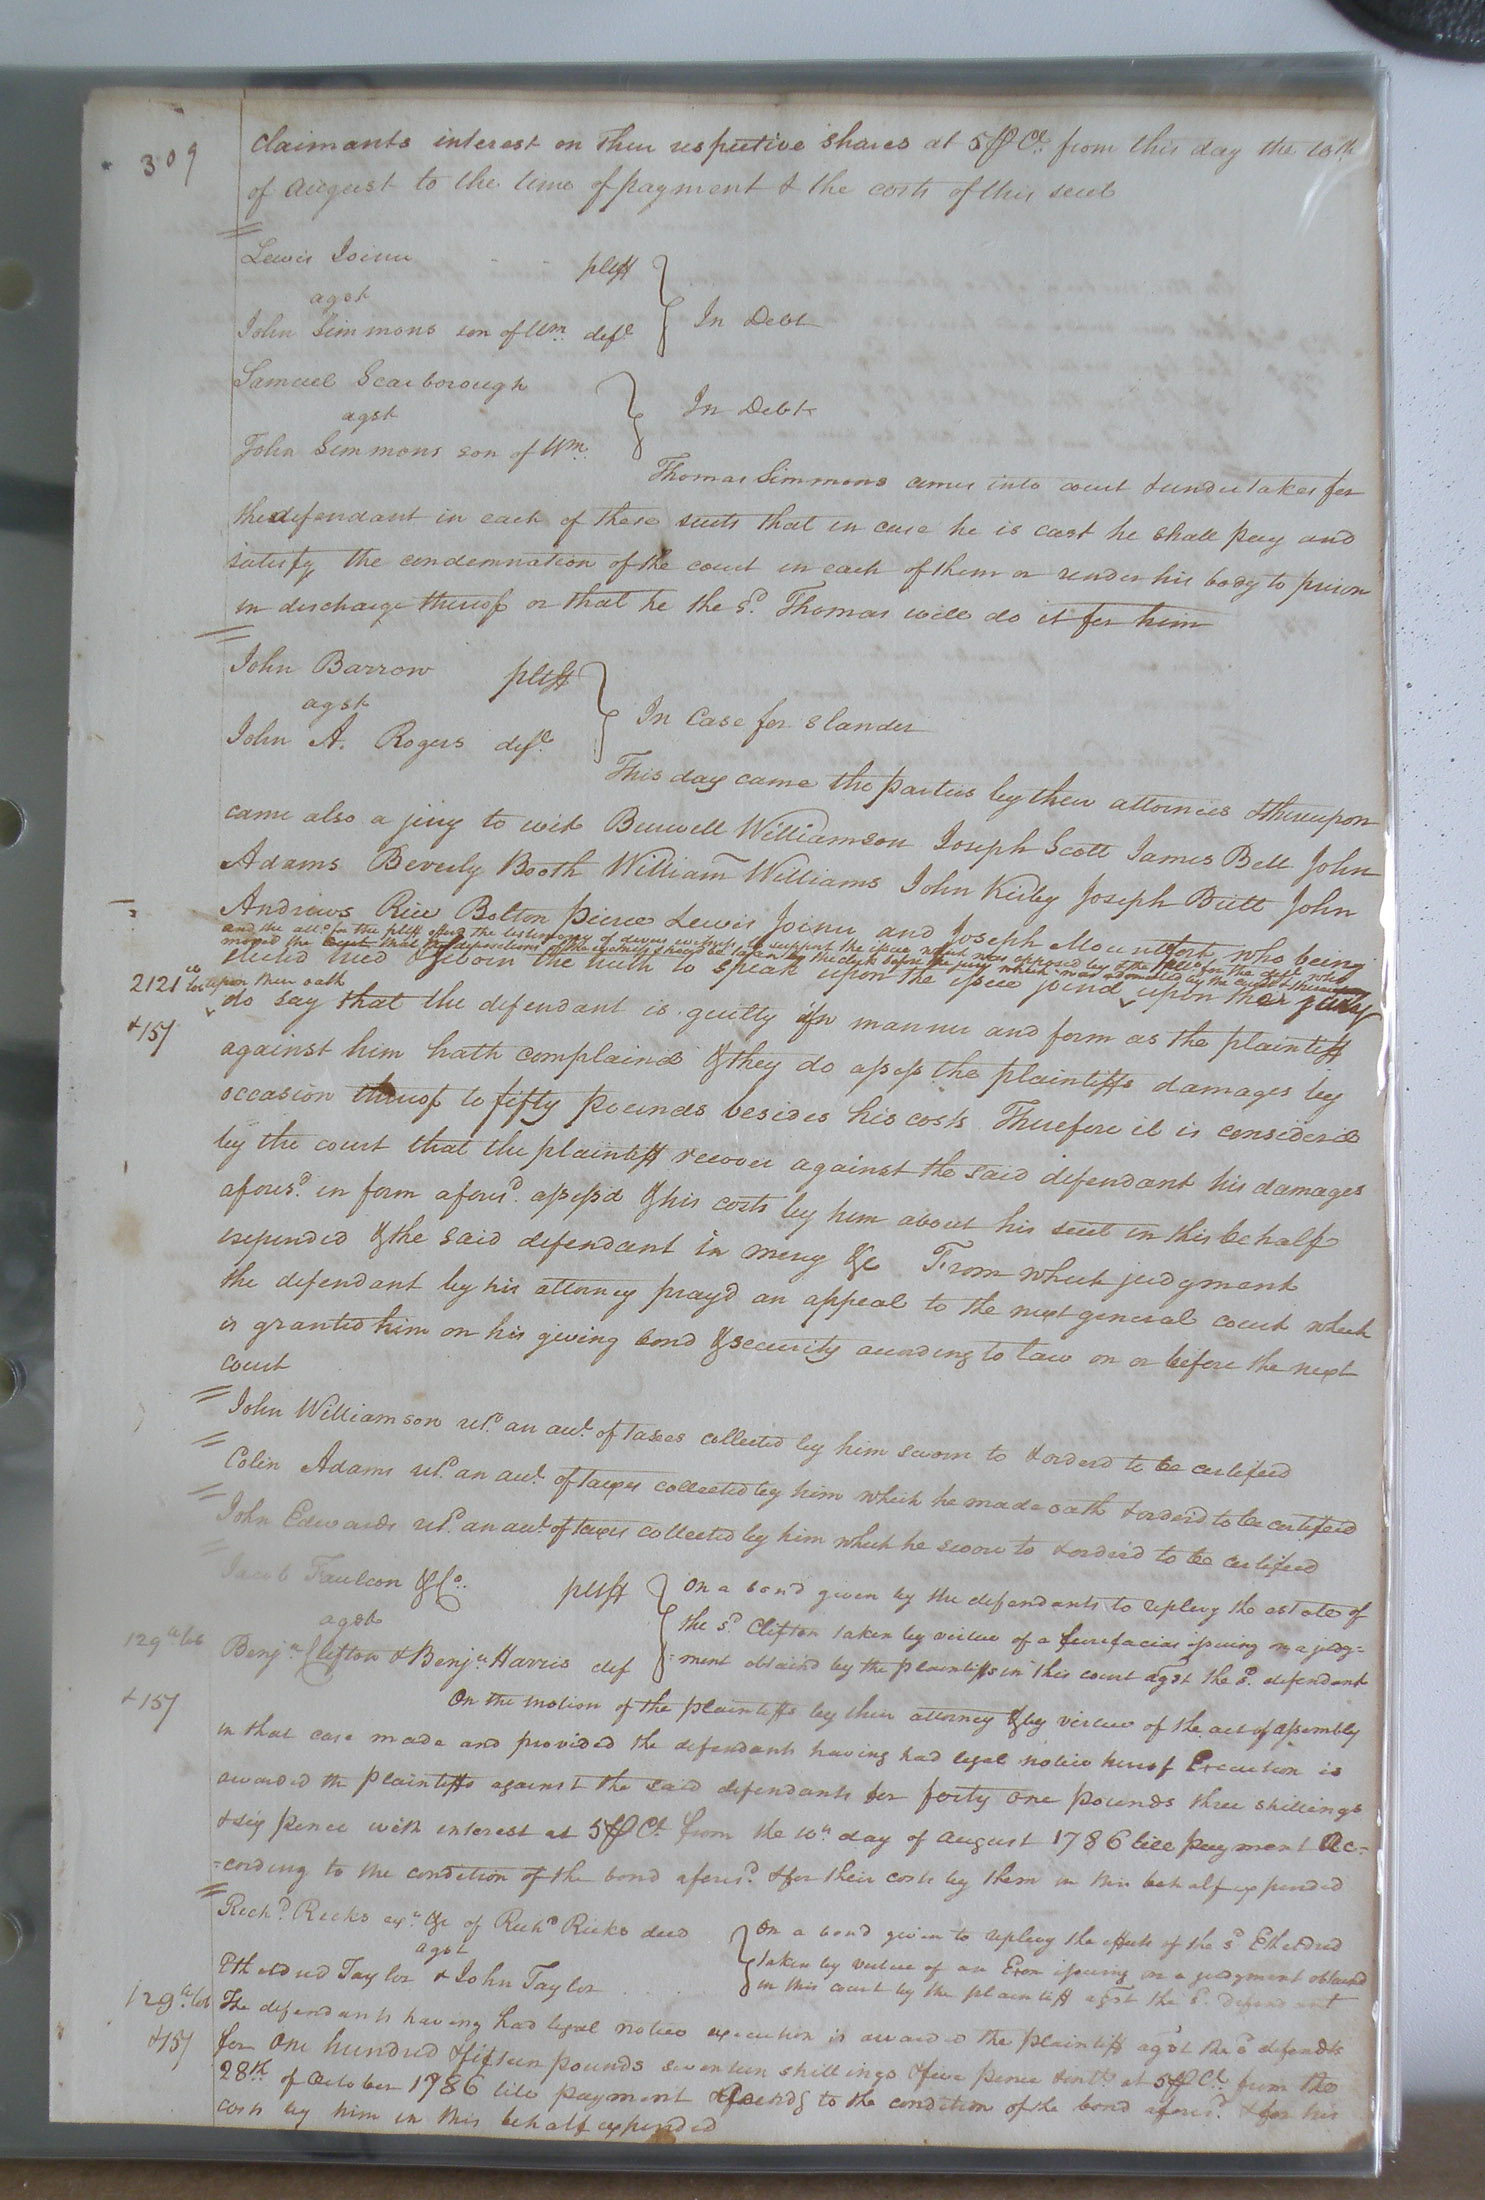 309
claimants interest on their respective shares at 5 ⅌ Ct. from this day the 10th
of august to the time of payment & the costs of this suit
Lewis Joiner pltff
agst
John Simmons son of Wm. deft
In Debt
Samuel Scarborough
agst
John Simmons son of Wm.
In Debt
Thomas Simmons comes into court & undertakes for
the defendant in each of these suits that in case he is cast he shall pay and
satisfy the condemnation of the court in each of them or render his body to prison
in discharge thereof or that he the sd. Thomas will do it for him
John Barrow pltff
agst
John A. Rogers deft.
In Case for slander
This day came the parties by their attornies & thereupon
came also a jury to wit Burwell Williamson Joseph Scott James Bell John
Adams Beverly Booth William Williams John Kirby Joseph Britt John
Andrews Rice Bolton Pierce Lewis Joiner and Joseph Mountfort who being
and the atto. for the pltff offerd the testimony of divers witnesses to support the issue which was opposed by the atto. for the deft who
moved the court that the depositions of the witnesses should be taken by the clerk before the jury which was admitted by the court & thereupon
elected tried & sworn the truth to speak upon the issue joind upon their
2121
upon their oath
do say that the defendant is guilty in manner and form as the plaintiff
+157
against him hath complaind & they do assess the plaintiffs damages by
occasion thereof to fifty pounds besides his costs Therefore it is considerd
by the court that the plaintiff recover against the said defendant his damages
aforesd. in form aforesd. assessd & his costs by him about his suit in this behalf
expended & the said defendant in mercy &c From which judgment
the defendant by his attorney prayd an appeal to the next general court which
is granted him on his giving bond & security according to law on or before the next
court
John Williamson retd. an acct. of taxes collected by him sworn to & orderd to be certified
Colin Adams retd. an acct. of taxes collected by him which he made oath & orderd to be certified
John Edwards retd. an acct. of taxes collected by him which he swore to & orderd to be certified
Jacob Faulcon & Co. pltff
agst
129 lb
Benja. Clifton & Benja. Harris def
On a bond given by the defendants to replevy the estate of
the sd. Clifton taken by virtue of a fierefacias issuing on a judg=
=ment obtaind by the plaintiffs in this court agst the sd. defendant
+157
On the motion of the plaintiffs by their attorney & by virtue of the act of assembly
in that case made and provided the defendants having had legal notice hereof Execution is
awarded the plaintiffs against the said defendants for forty one pounds three shillings
& six pence with interest at 5 ⅌ Ct. from the 10th day of august 1786 till payment ac=
=cording to the condition of the bond aforesd. & for their costs by them in this behalf expended
Richd. Ricks exr. &c of Richd Ricks decd
agst
Etheldred Taylor & John Taylor
On a bond given to replevy the effects of the sd. Etheldred
taken by virtue of an Exon issuing on a judgment obtaind
in this court by the plaintiff agst the sd. defendant
129 lb
The defendants having had legal notice execution is awarded the plaintiff agst the sd defendts
+157
for one hundred & fifteen pounds seventeen shillings & five pence & intt. at 5 ⅌ Ct. from the
28th. of October 1786 till payment accordg to the condition of the bond aforesd. & for his
costs by him in this behalf expended